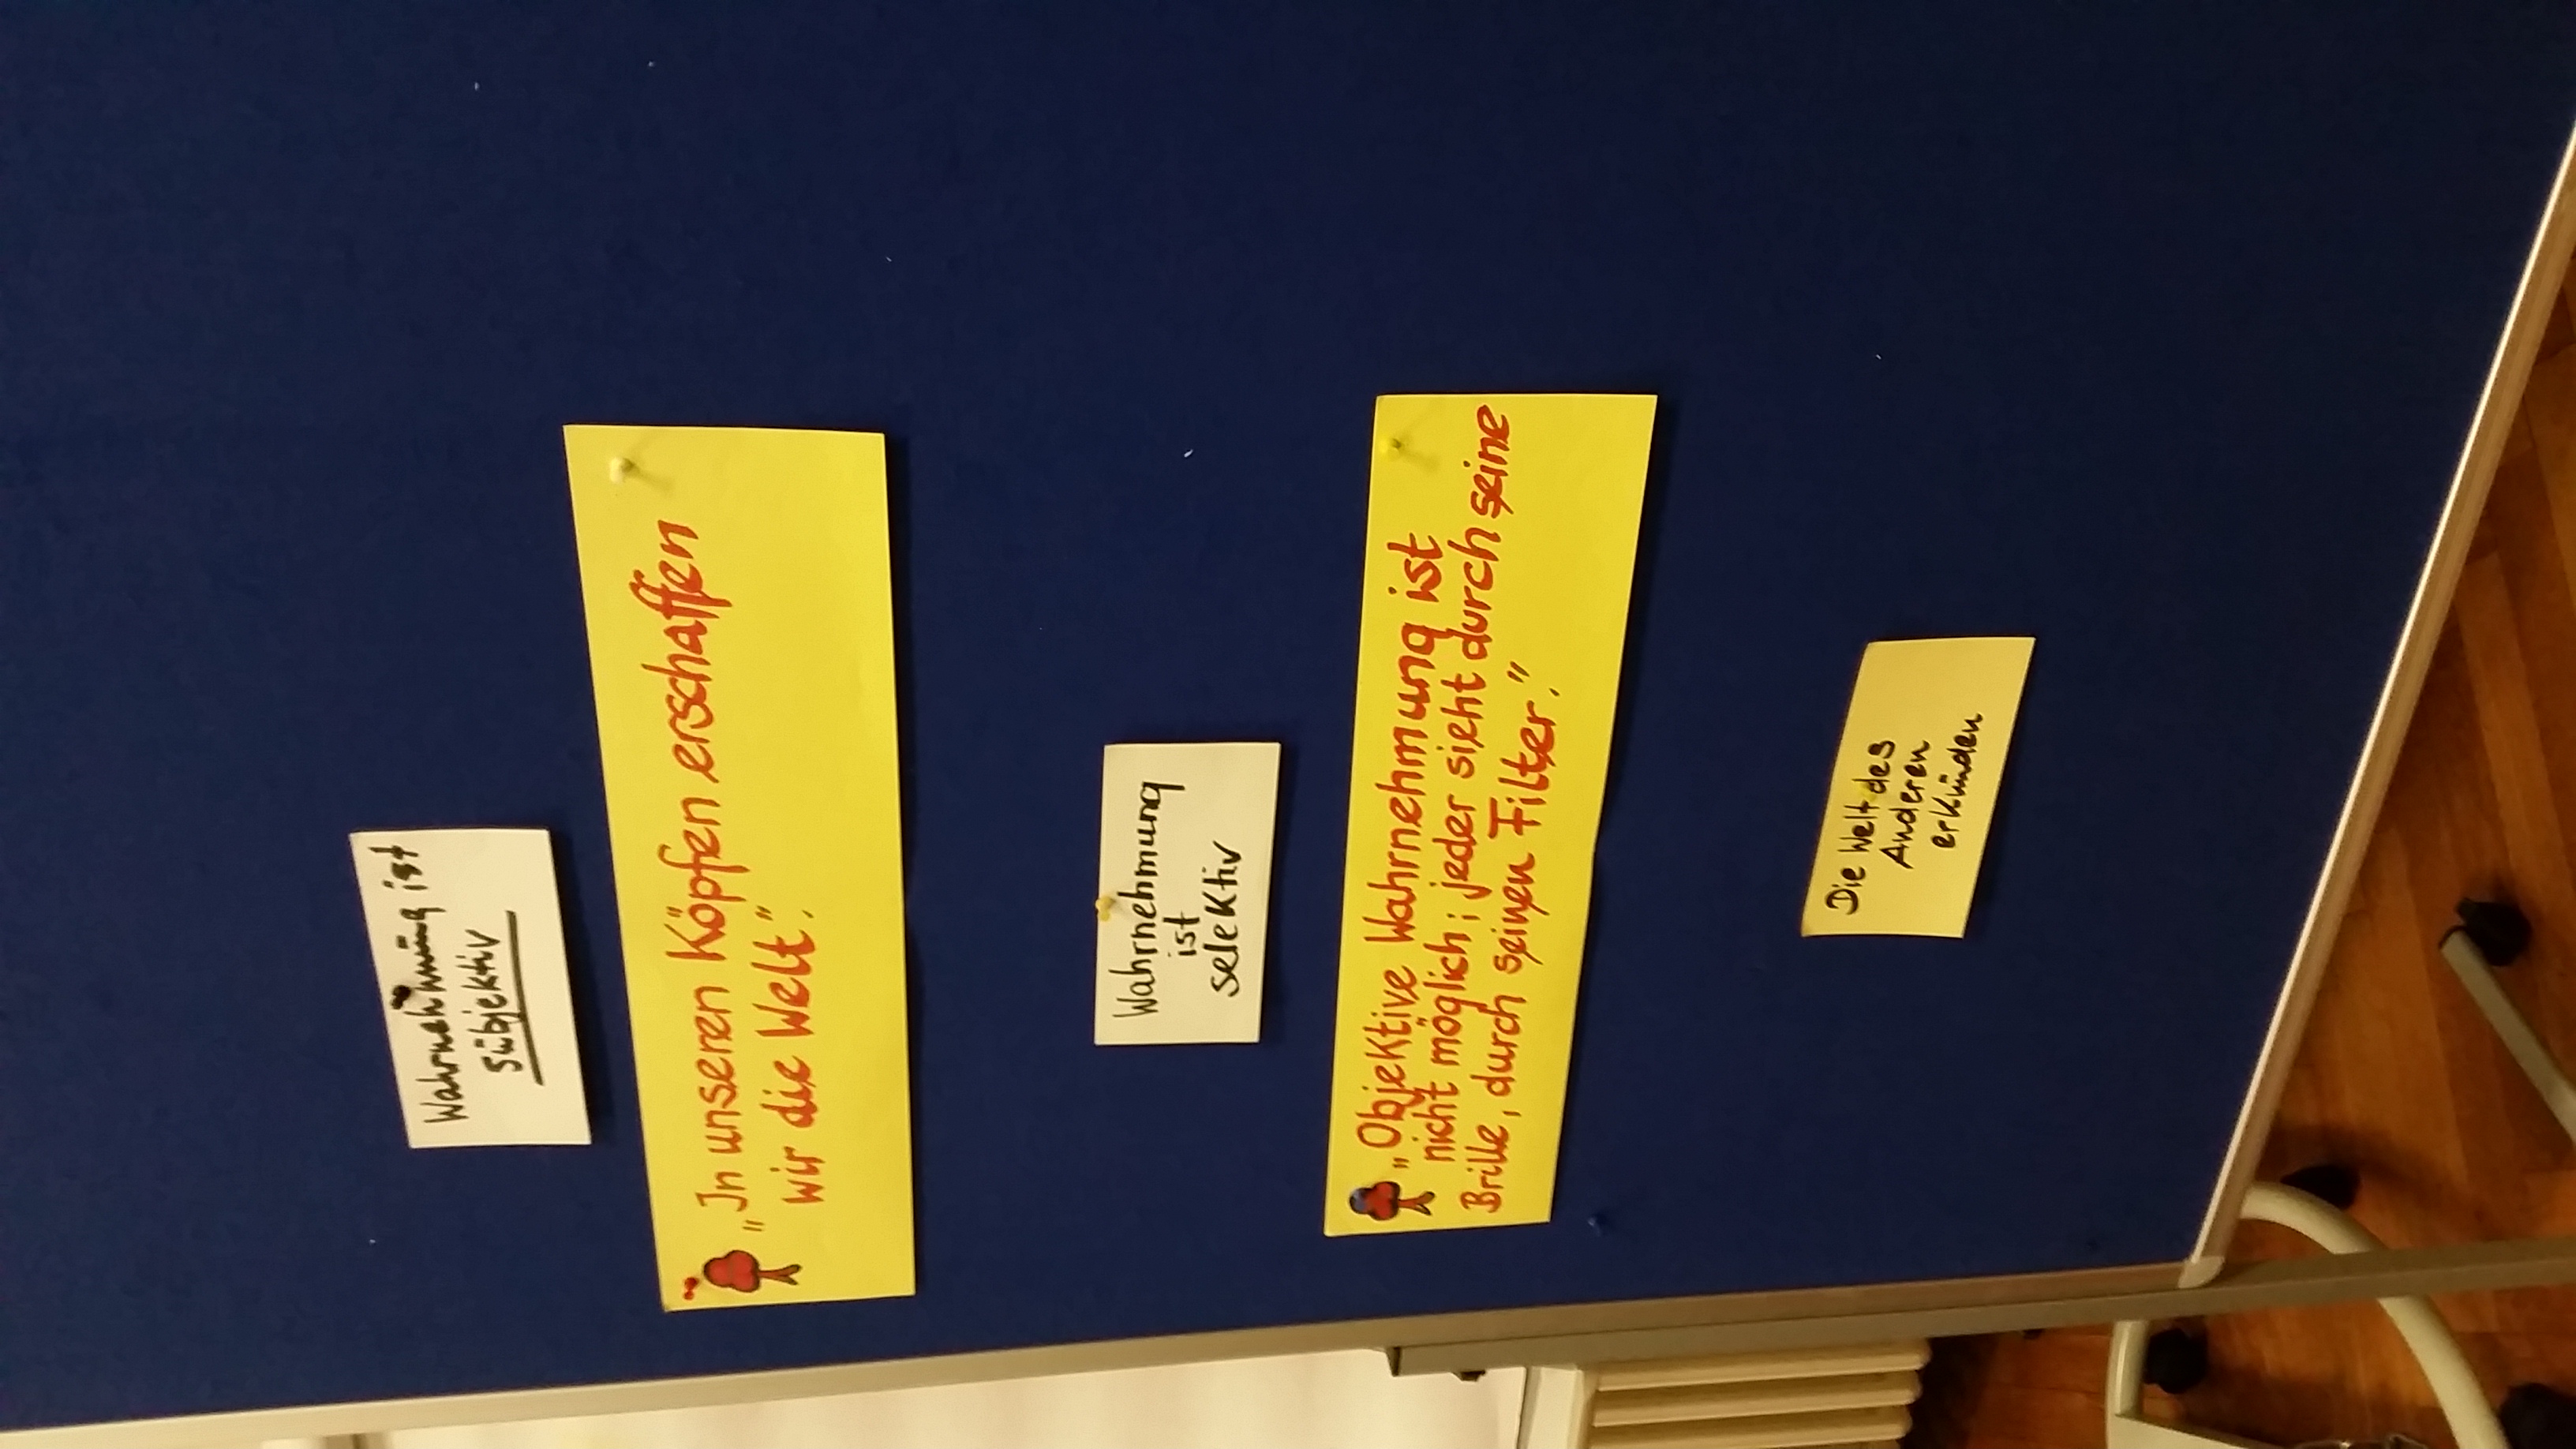 Wahrnehmung ist
subjektiv
„In unseren Köpfen erschaffen
wir die Welt".
Wahrnehmung
ist
selektiv
„Objektive Wahrnehmung ist
nicht möglich; jeder sieht durch seine
Brille, durch seinen Filter."
Die Welt des
Anderen
erkunden